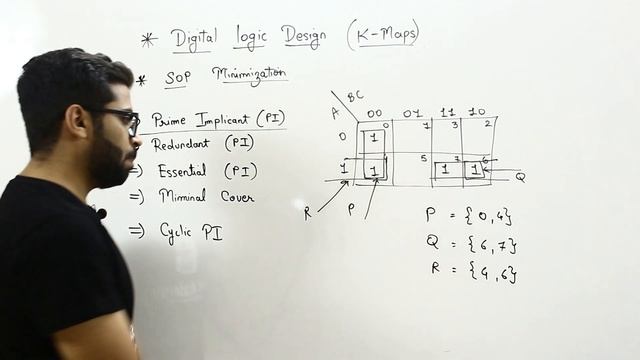 * Digital Logic Design (K-Maps)
* SOP Minimization
Prime Implicant (PI)
Redundant (PI)
=> Essential (PI)
=> Miminal Cover
=> Cyclic PI
A BC
00 01 11 10
0 1 0 1 3 2
1 1 5 1 7 1 6 Q
R P
P = {0,4}
Q = {6,7}
R = {4,6}